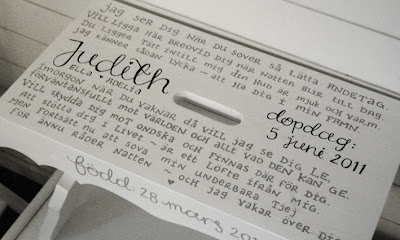 jag SER DIG NÄR DU SOVER SÅ LÄTTA ANDETAG.
VILL LIGGA HÄR BREDVID DIG NÄR NATTEN BLIR TILL DAG.
DU LIGGER TÄTT INTILL MIG DIN HUD ÄR MJUK OCH VARM.
Jag KÄNNER SÅDAN LYCKA ~ ATT HA DIG I MIN FAMN.
Judith
ELLA ♥ ADELIA
IMORGON NÄR DU VAKNAR DÅ VILL jag SE DIG LE.
FÖRVÄNTANSFULLT MOT VÄRLDEN OCH ALLT VAD DEN KAN GE.
VILL SKYDDA DIG MOT ONDSKA OCH FINNAS DÄR FÖR DIG.
ATT STÖTTA DIG I LIVET ~ ÄR ETT LÖFTE IFRÅN MIG.
MEN FORTSÄTT NU ATT SOVA MIN UNDERBARA Tjej
FÖR ÄNNU RÅDER NATTEN ~ OCH jag VAKAR ÖVER DIG
dopdag:
5 juni 2011
♥
född: 28 mars 20